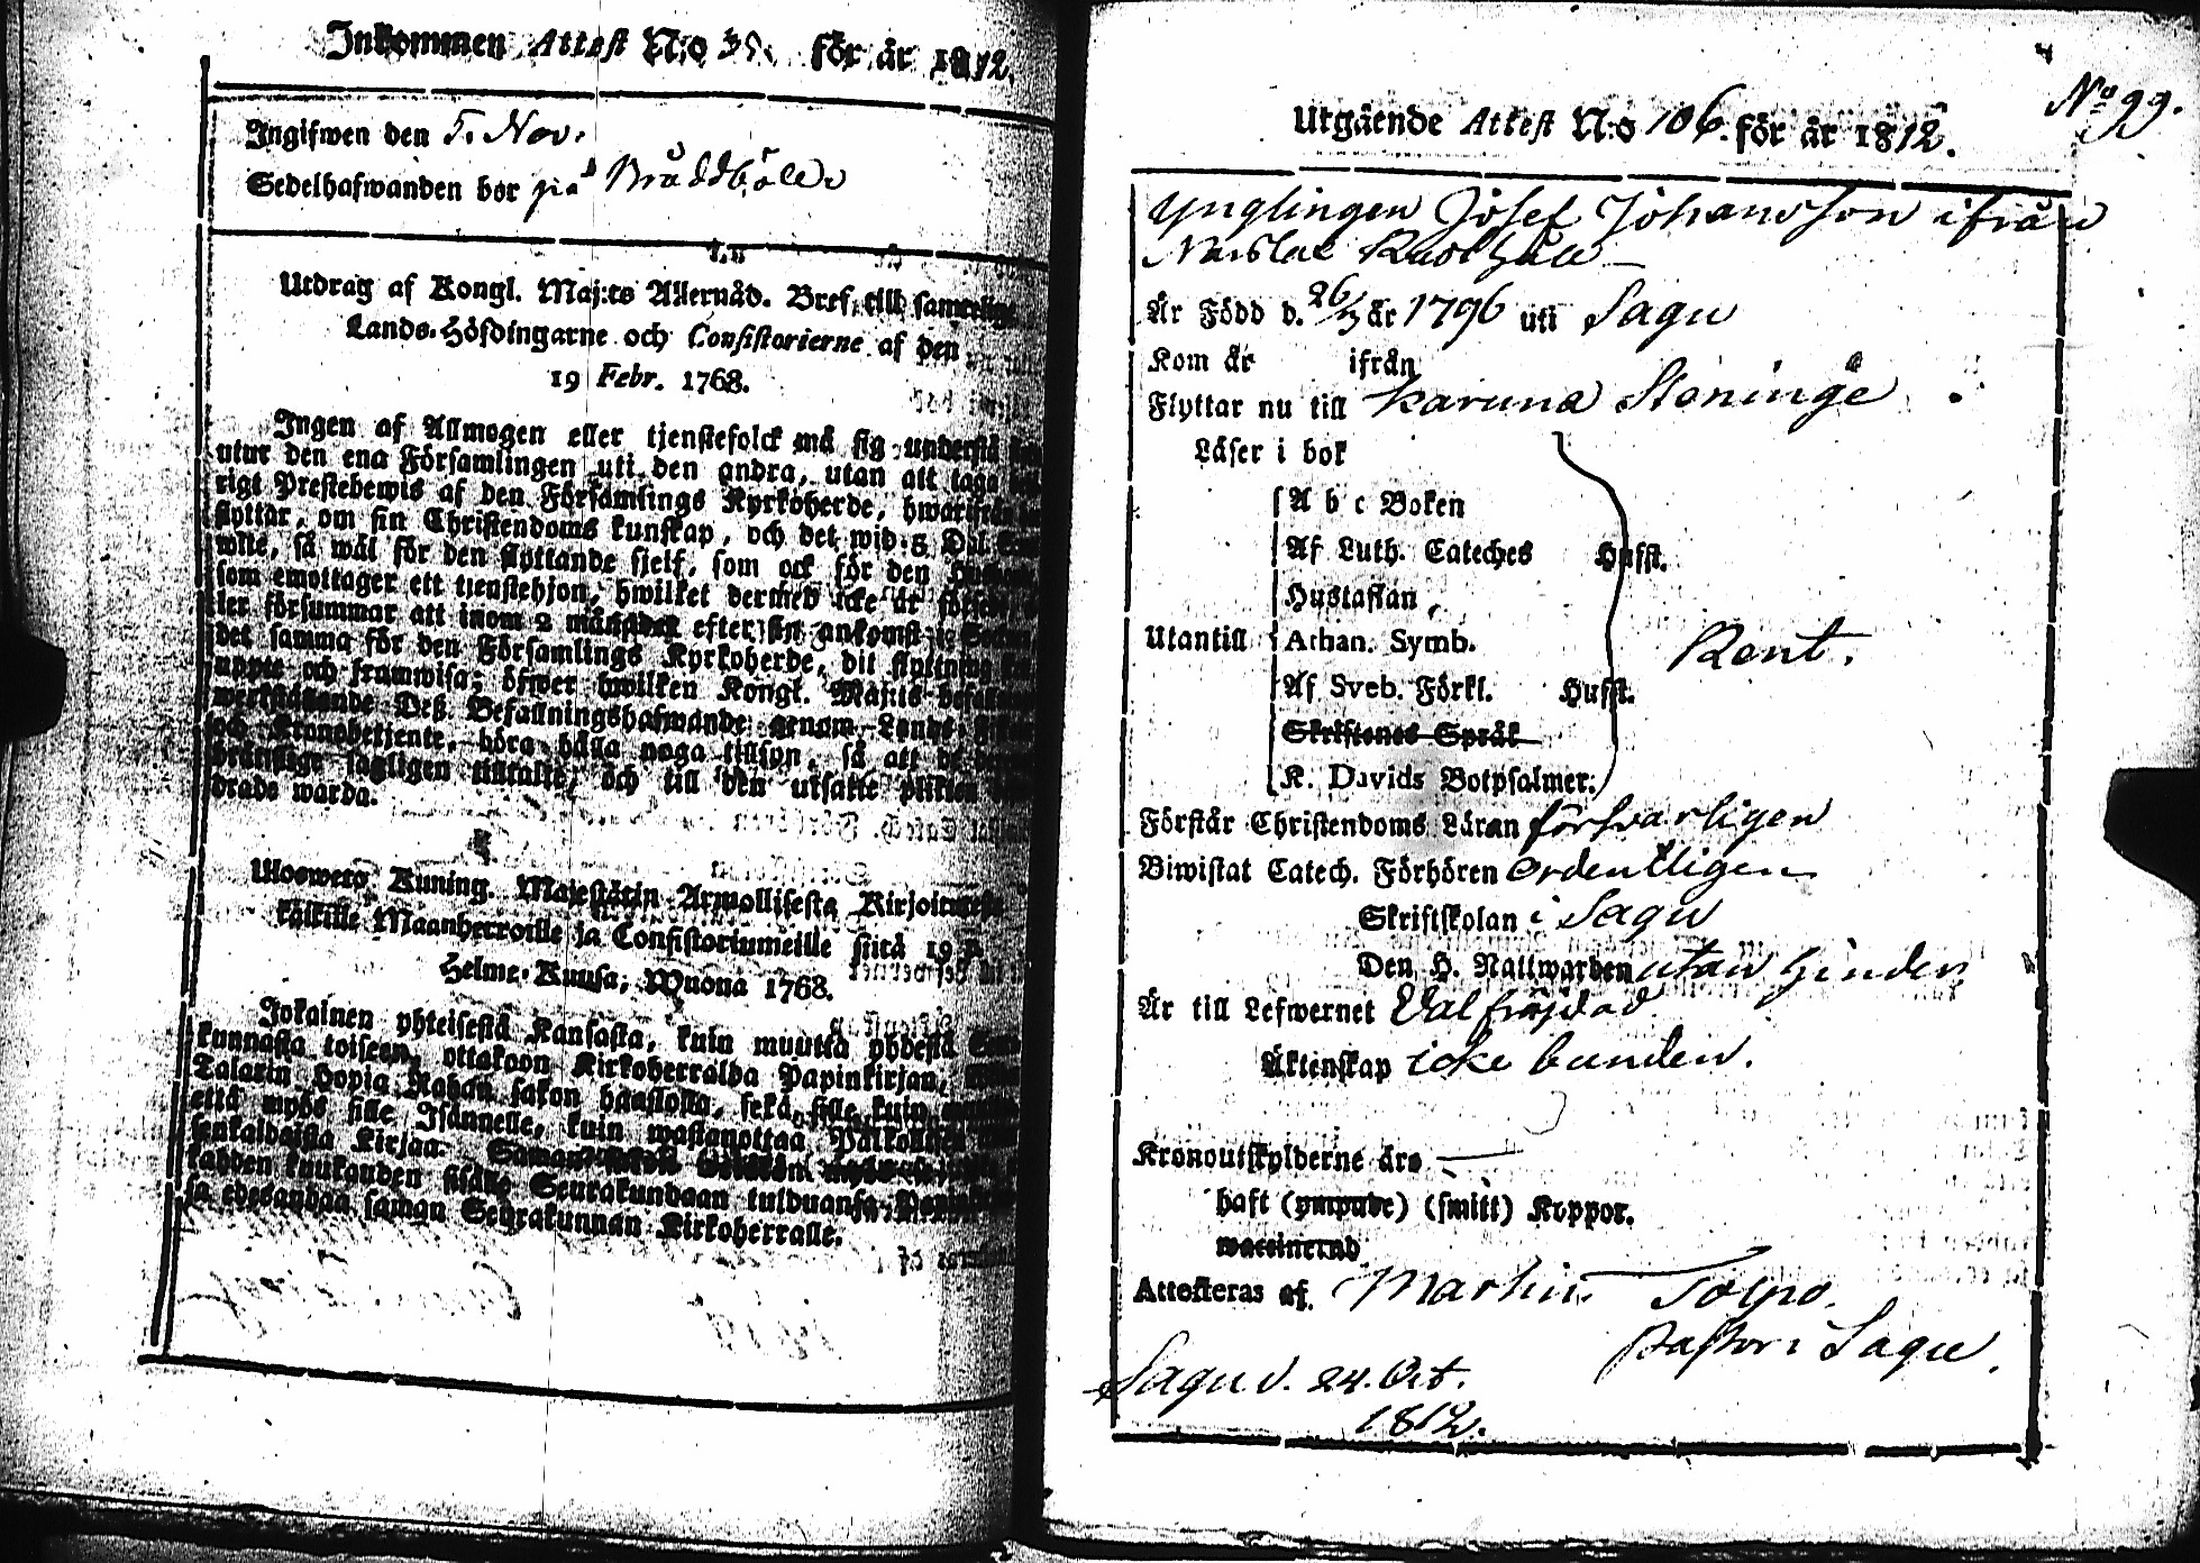 Inkommen Attest N:o för år 1812.
Ingifwen den 5. Nov.
Sedelhafwanden bor på Bräddböle
Utdrag af Kongl. Maj:ts Allernåd. Bref till samtelige
Lands-Höfdingarne och Consistorierne af den
19 Febr. 1768.
Ingen af Allmogen eller tjenstefolck må sig understå
utur den ena Församlingen uti den andra, utan att taga
rigt Prestebewis af den Församlings Kyrkoherde, hwarifrån
flyttar, om sin Christendoms kunskap, och det wid 5 Dal.
wite, så wäl för den flyttande sjelf, som ock för den
som emottager ett tjenstehjon, hwilket dermed icke är
ler försummar att inom 2 månader efter sin ankomst
det samma för den Församlings Kyrkoherde, dit flyttning
uppte och framwisa; öfwer hwilken Kongl. Maj:ts
werkställande Deß Befallningshafwande genom
och Kronobetjente, böra hålla noga tillsyn, så att
brätslige lagligen tilltalte, och till den utsatte plikten
drade warda.
Ulosweto Kuning. Majestätin Armollisesta Kirjoituxesta
kaikille Maanherroille ja Consistoriumeille siitä 19 P.
Helme-Kuusa, Wuona 1768.
Jokainen yhteisestä Kansasta, kuin muutta yhdestä
kunnasta toiseen, ottakoon Kirkoherralda Papinkirjan,
Talarin Hopia Rahan sakon haastolla, sekä sille kuin
että myös sille Isännelle, kuin wastanottaa
senkaldaista Kirjaa.
kahden kuukauden sisälle Seurakundaan tulduansa
ja edesandaa saman Seurakunnan Kirkoherralle.
No 99.
Utgående Attest N:o 106. för år 1812.
Ynglingen Josef Johansson ifrån
Är Född d. 26/3 år 1796 uti Sagu
Kom år ifrån
Flyttar nu till Karuna Steninge
Läser i bok
A b c Boken
Af Luth. Cateches Husst.
Hustaflan
Utantill Athan. Symb. Rent.
Af Sveb. Förkl. Husst.
Skriftenes Språk
K. Davids Botpsalmer.
Förstår Christendoms Läran försvarligen
Biwistat Catech. Förhören ordentligen
Skriftskolan i Sagu
Den H. Nattwarden utan hinder
Är till Lefwernet Välfräjdad
Äktenskap icke bunden.
Kronoutskylderne äro —
haft (ympade) (smitt) Koppor.
waccinerad
Attesteras af. Martin Tolpo.
Pastor i Sagu.
Sagu d. 24. Oct.
1812.